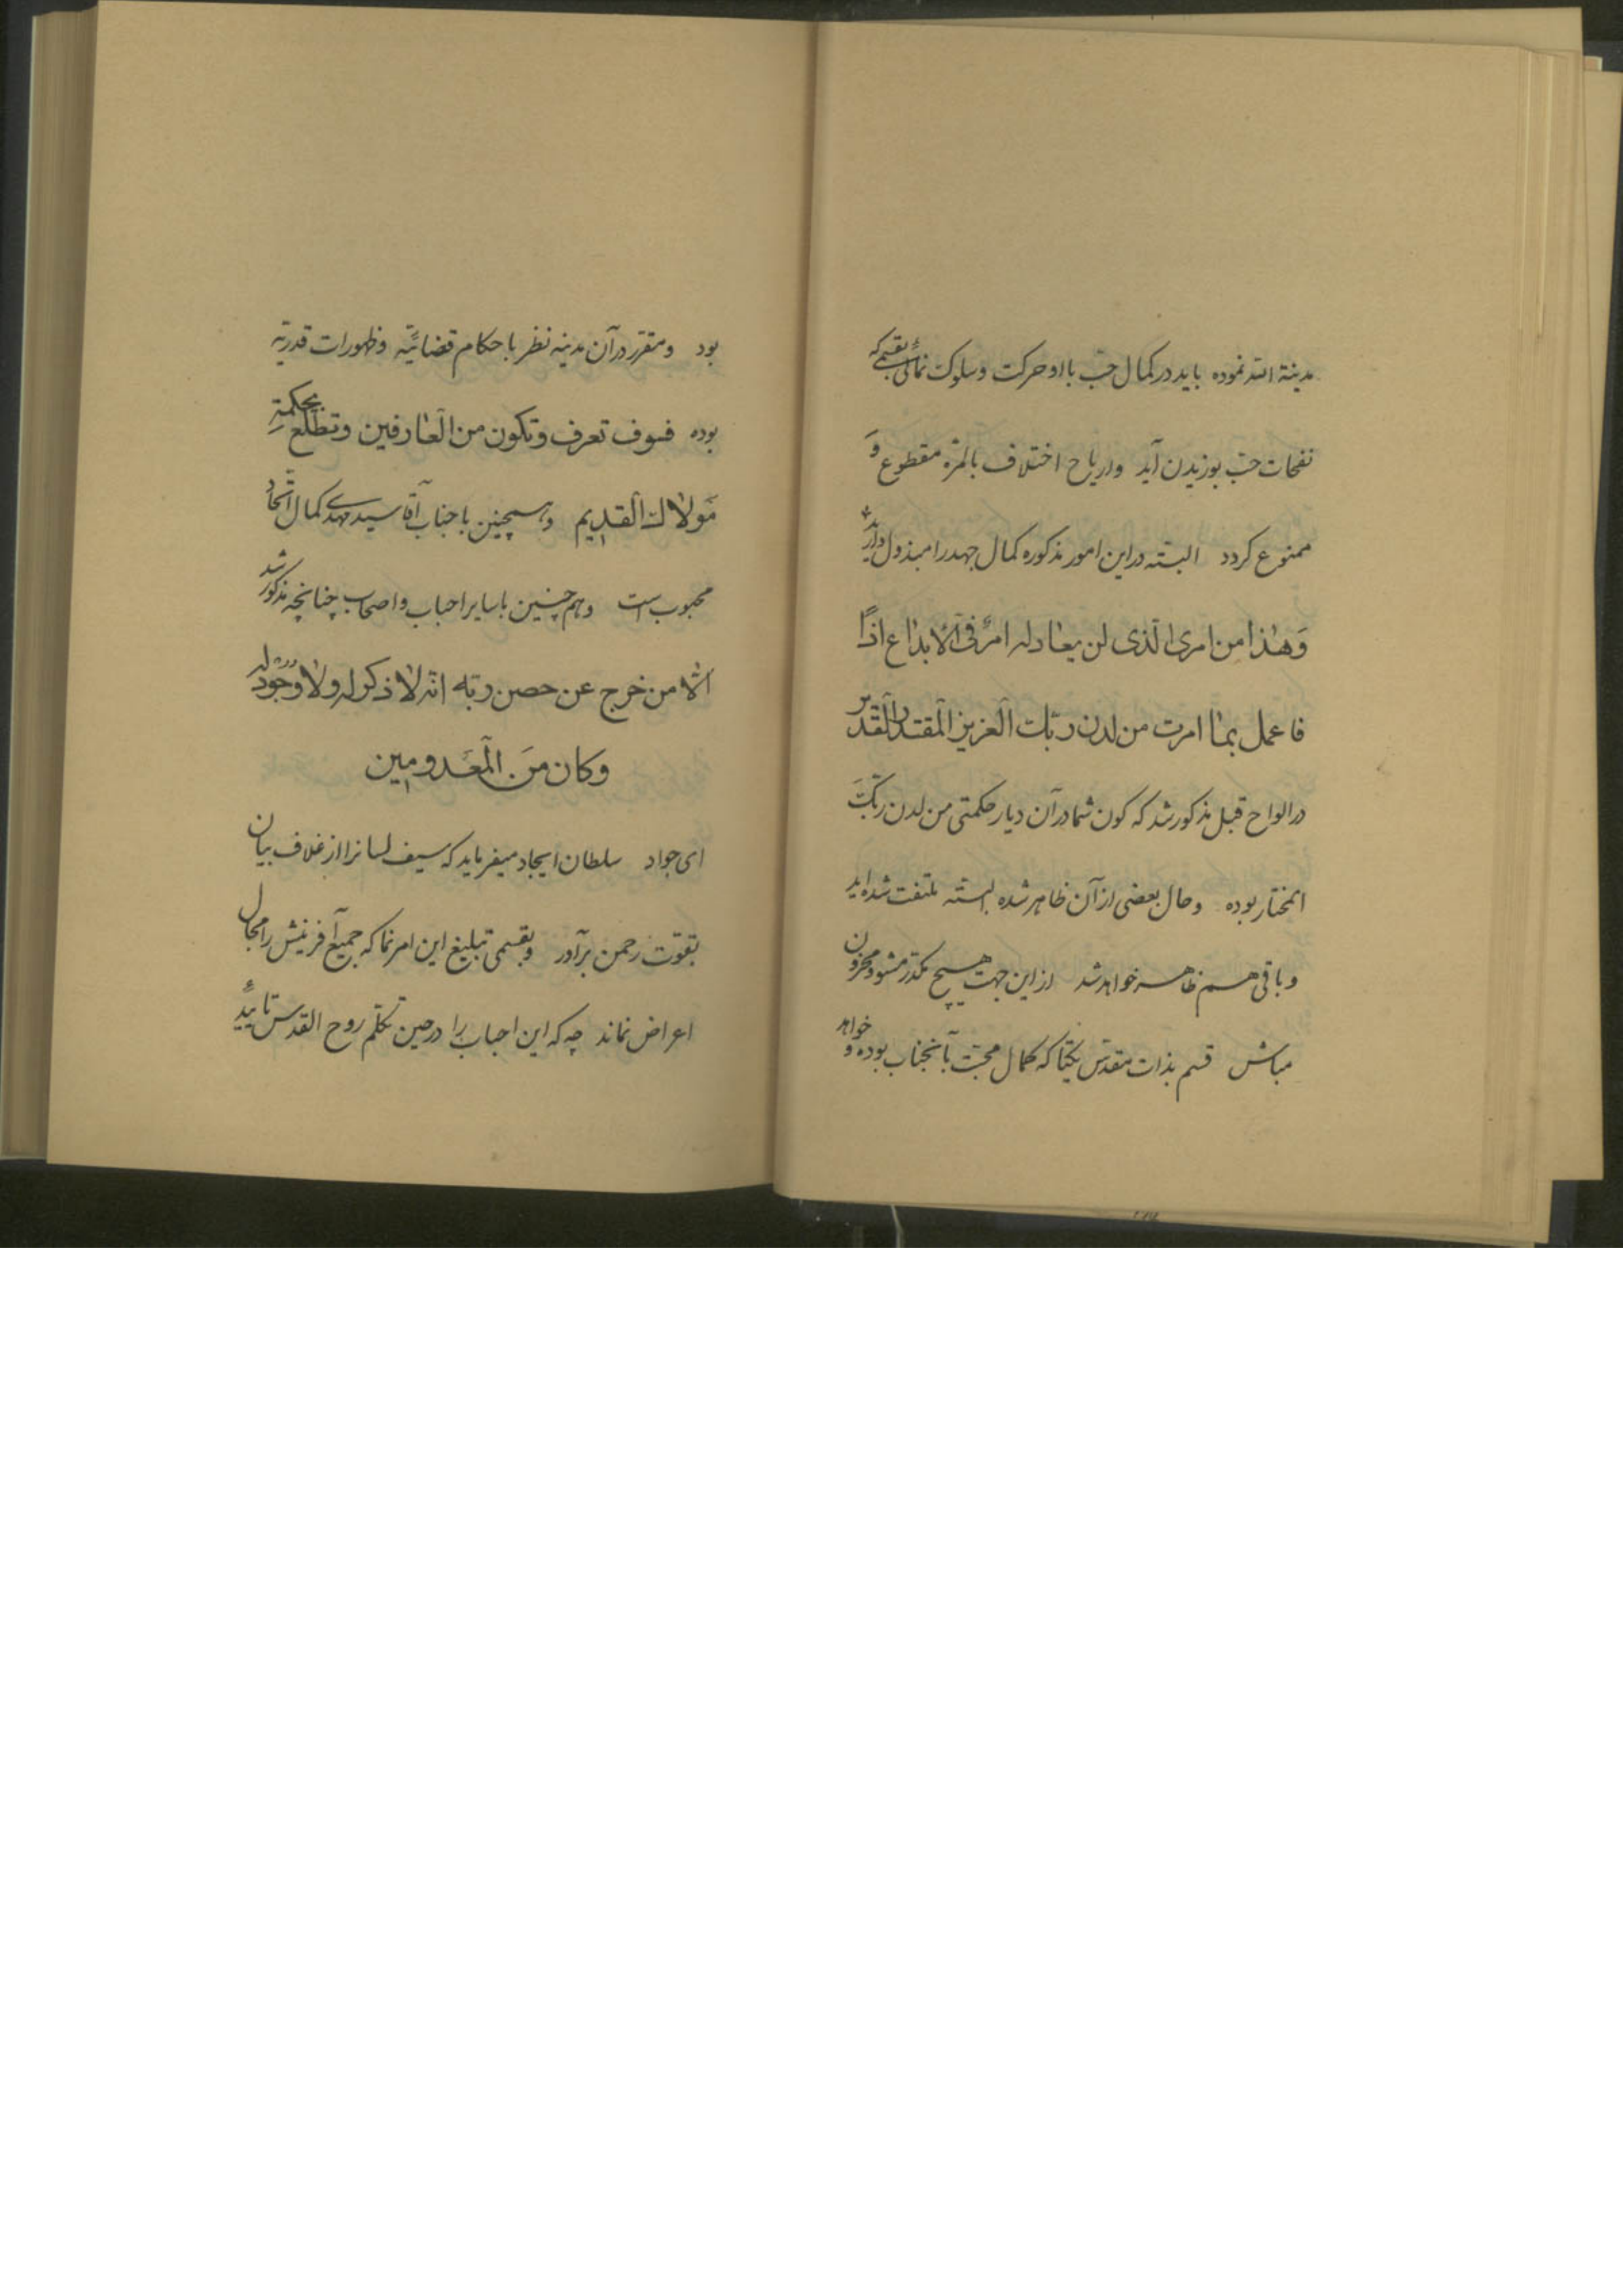 مدینة الله نموده باید در کمال حبّ با او حرکت و سلوک نمائی بقسمی که
نفحات حبّ بوزیدن آید و اریاح اختلاف بالمرّه مقطوع و
ممنوع کردد البتّه در این امور مذکوره کمال جهد را مبذول دارید
وَهٰذا من امری الّذی لن یعادله امرٌ فی الابداع اذاً
فاعمل بما امرت من لدن ربّک العزیز المقتدر القدیر
در الواح قبل مذکور شد که کون شما در آن دیار حکمتی من لدن ربّک
المختار بوده و حال بعضی از آن ظاهر شده البتّه ملتفت شده‌اید
و باقی هم ظاهر خواهد شد از این جهت هیچ مکدّر مشو و محزون
مباش قسم بذات مقدّس یکتا که کمال محبّت بآنجناب بوده و خواهد
بود و مقرّ در آن مدینه نظر باحکام قضائیّه و ظهورات قدریّه
بوده فسوف تعرف و تکون من العارفین و تطّلع بحکمة
مَولاک القدیم و همچنین با جناب آقا سید مهدی کمال اتّحاد
محبوب است و هم چنین با سایر احباب و اصحاب چنانچه مذکور شد
الّا من خرج عن حصن ربّه انّه لا ذکر له ولا وجود له
وکان منَ المَعدومین
ای جواد سلطان ایجاد میفرماید که سیف لسانرا از غلاف بیان
بقوّت رحمن برآور و بقسمی تبلیغ این امر نما که جمیع آفرینش را مجال
اعراض نماند چه که این احباب را در حین تکلّم روح القدس تایید